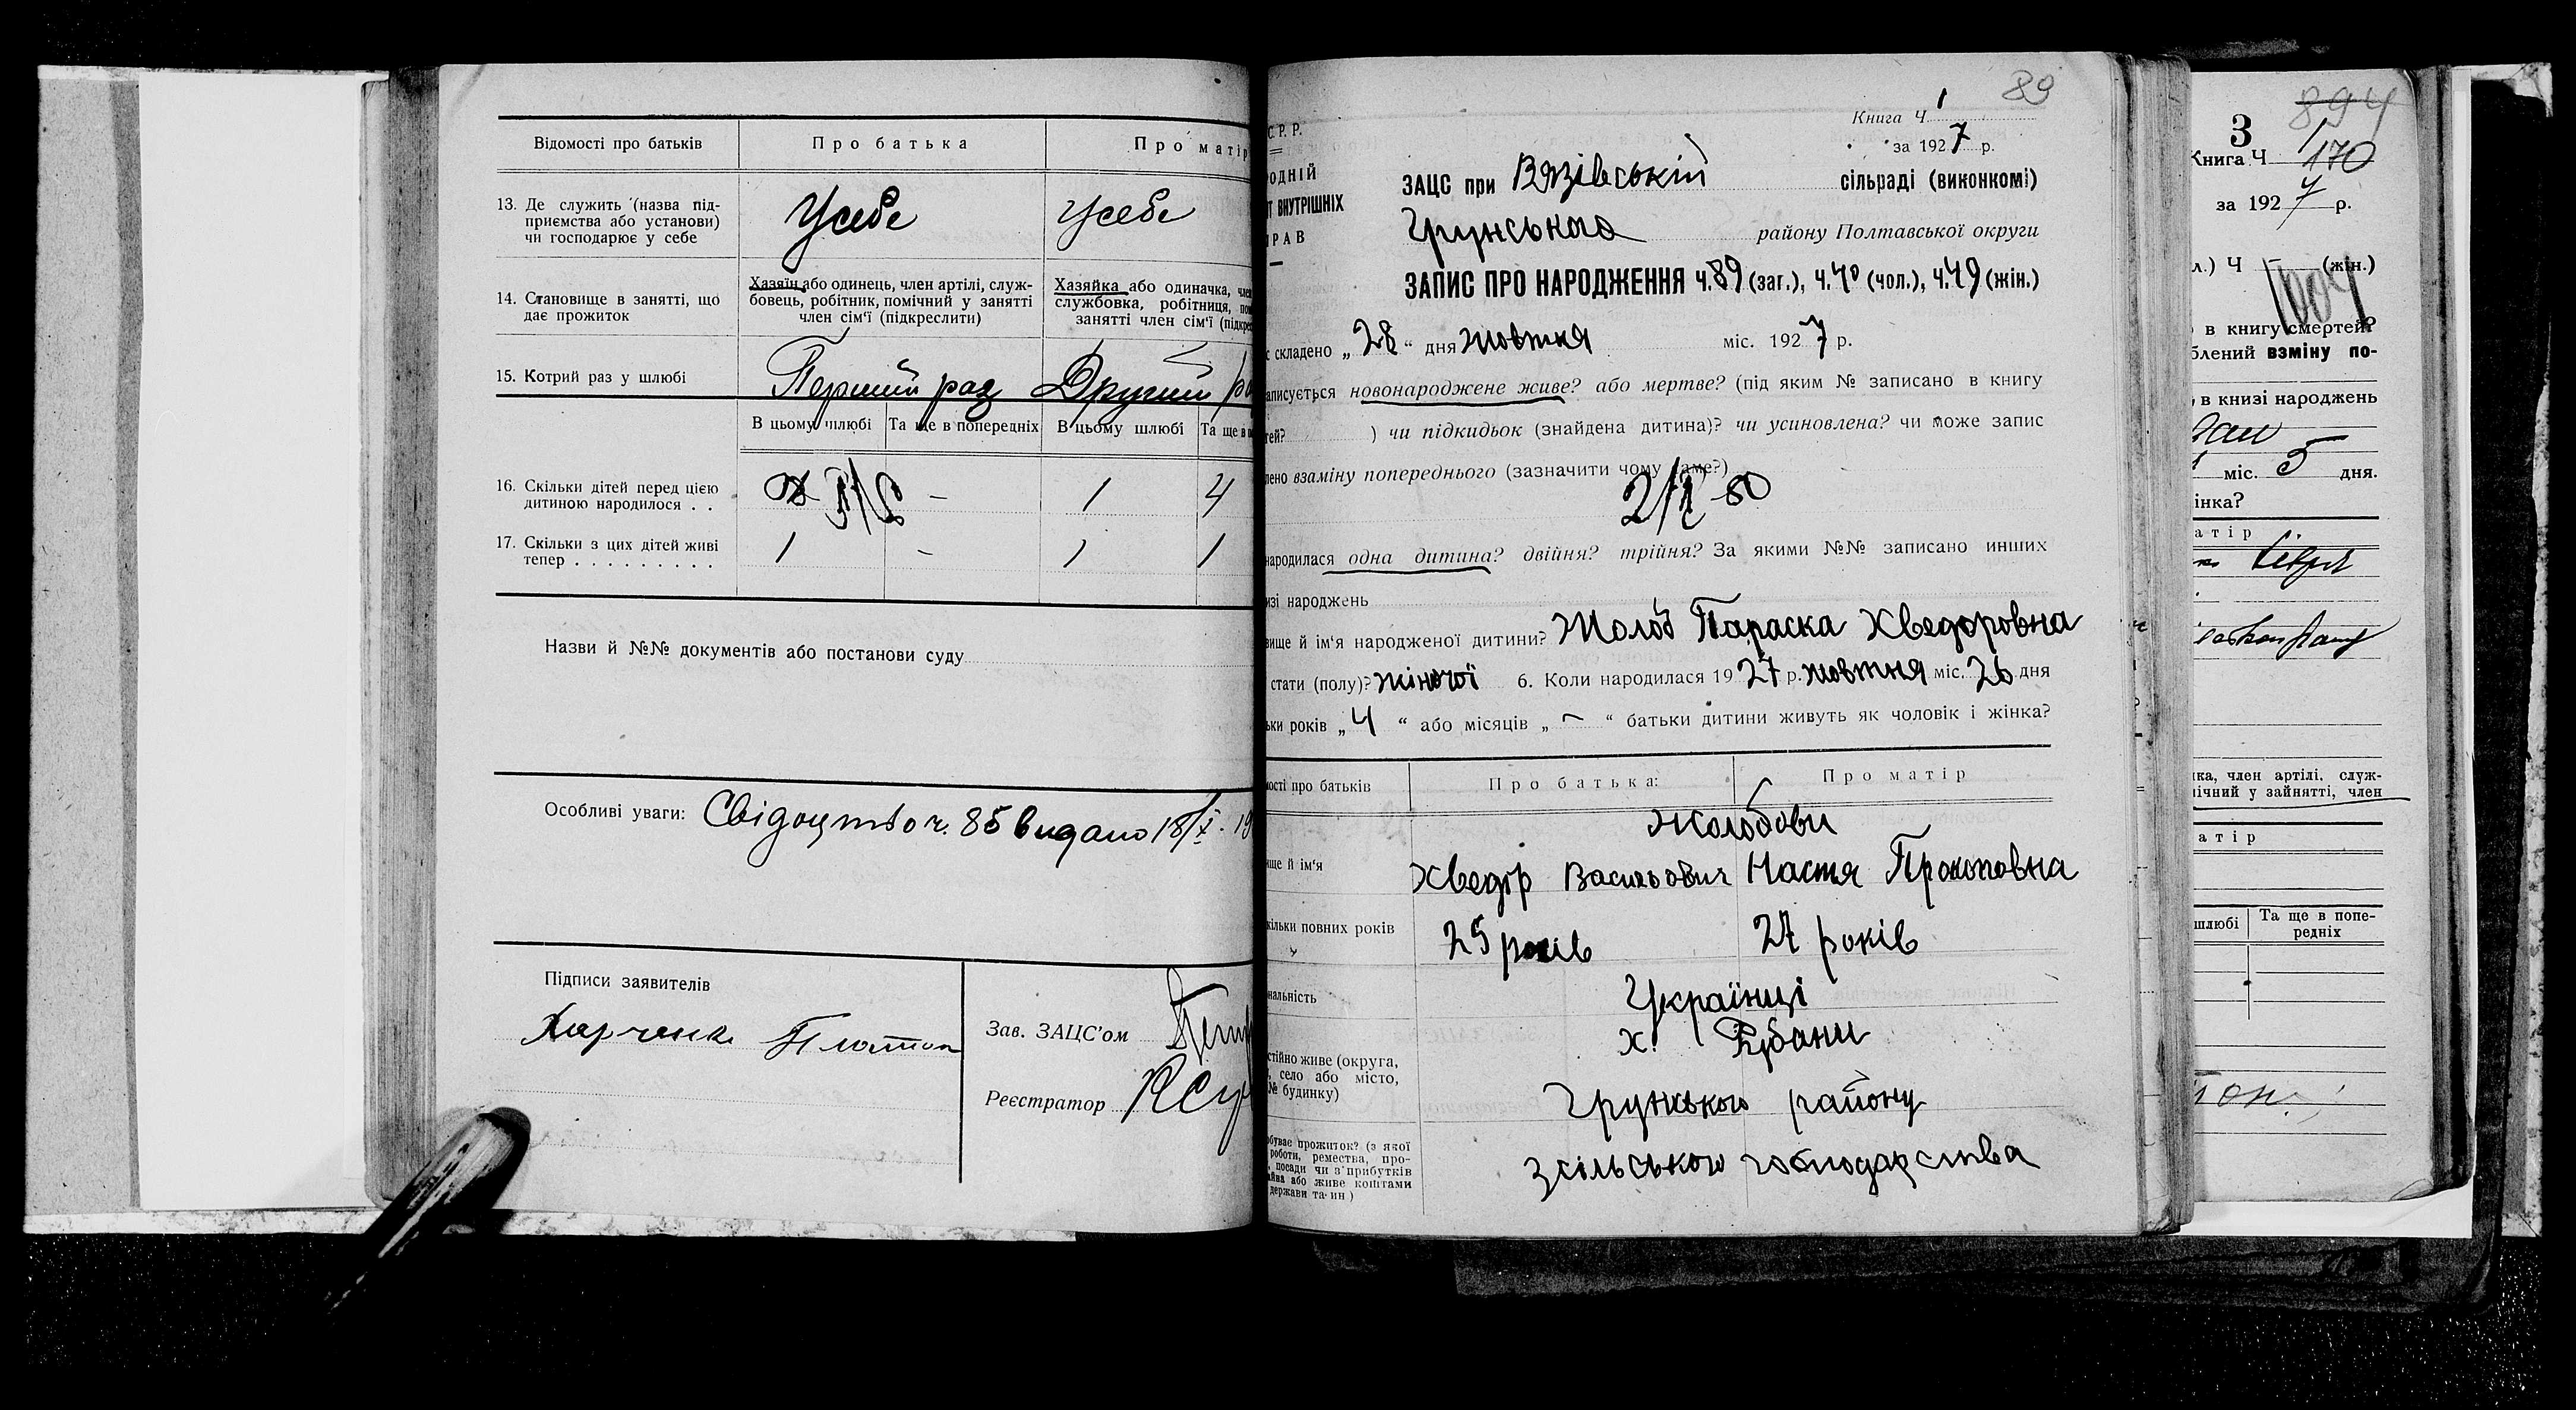 Відомості про батьків
Про батька
Про матір
13. Де служить (назва під-
приємства або установи)
чи господарює у себе
Усебе
Усебе
14. Становище в занятті, що
дає прожиток
Хазяїн або одинець, член артілі, служ-
бовець, робітник, помічний у занятті
член сім'ї (підкреслити)
Хазяйка або одиначка, член
службовка, робітниця, по
занятті член сім'ї (підкре
15. Котрий раз у шлюбі
Перший раз
Другий ра
В цьому шлюбі
Та ще в попередніх
В цьому шлюбі
Та ще в п
16. Скільки дітей перед цією
дитиною народилося . .
–
1
4
17. Скільки з цих дітей живі
тепер . . . . . . . . .
1
–
1
1
Назви й №№ документів або постанови суду
Особливі уваги: Свідоцтво ч. 85 видано 18/X. 19
Підписи заявителів
Харченко Платон
Зав. ЗАЦС'ом
Реєстратор
89
С. Р. Р.
РОДНІЙ
Т ВНУТРІШНІХ
РАВ
Книга Ч. 1
за 1927 р.
ЗАЦС при Вязівській сільраді (виконкомі)
Грунського району Полтавської округи
ЗАПИС ПРО НАРОДЖЕННЯ Ч. 89 (заг.), Ч. 40 (чол.), Ч. 49 (жін.)
с складено „28“ дня жовтня міс. 1927 р.
аписується новонароджене живе? або мертве? (під яким № записано в книгу
тей? ) чи підкидьок (знайдена дитина)? чи усиновлена? чи може запис
лено взаміну попереднього (зазначити чому саме?)
народилася одна дитина? двійня? трійня? За якими №№ записано инших
изі народжень
вище й ім'я народженої дитини? Жолоб Параска Хведоровна
стати (полу)? жіночої 6. Коли народилася 1927 р. жовтня міс. 26 дня
ьки років „4“ або місяців „–“ батьки дитини живуть як чоловік і жінка?
мості про батьків
Про батька:
Про матір
Жолобови
ище й ім'я
Хведір Васильович
Настя Прокоповна
кільки повних років
25 років
27 років
нальність
Українці
стійно живе (округа,
, село або місто,
№ будинку)
х. Рубани
Грунського району
обуває прожиток? (з якої
роботи, ремества, про-
, посади чи з прибутків
айва або живе коштами
держави та ин)
зсільського господарства
894
3
Книга Ч 1
170
за 1927 р.
л.) Ч – (жін.)
1004
в книгу смертей?
блений взміну по-
, в книзі народжень
міс. 5 дня.
інка?
атір
ка, член артілі, служ-
ічний у зайнятті, член
атір
шлюбі
Та ще в попе-
редніх